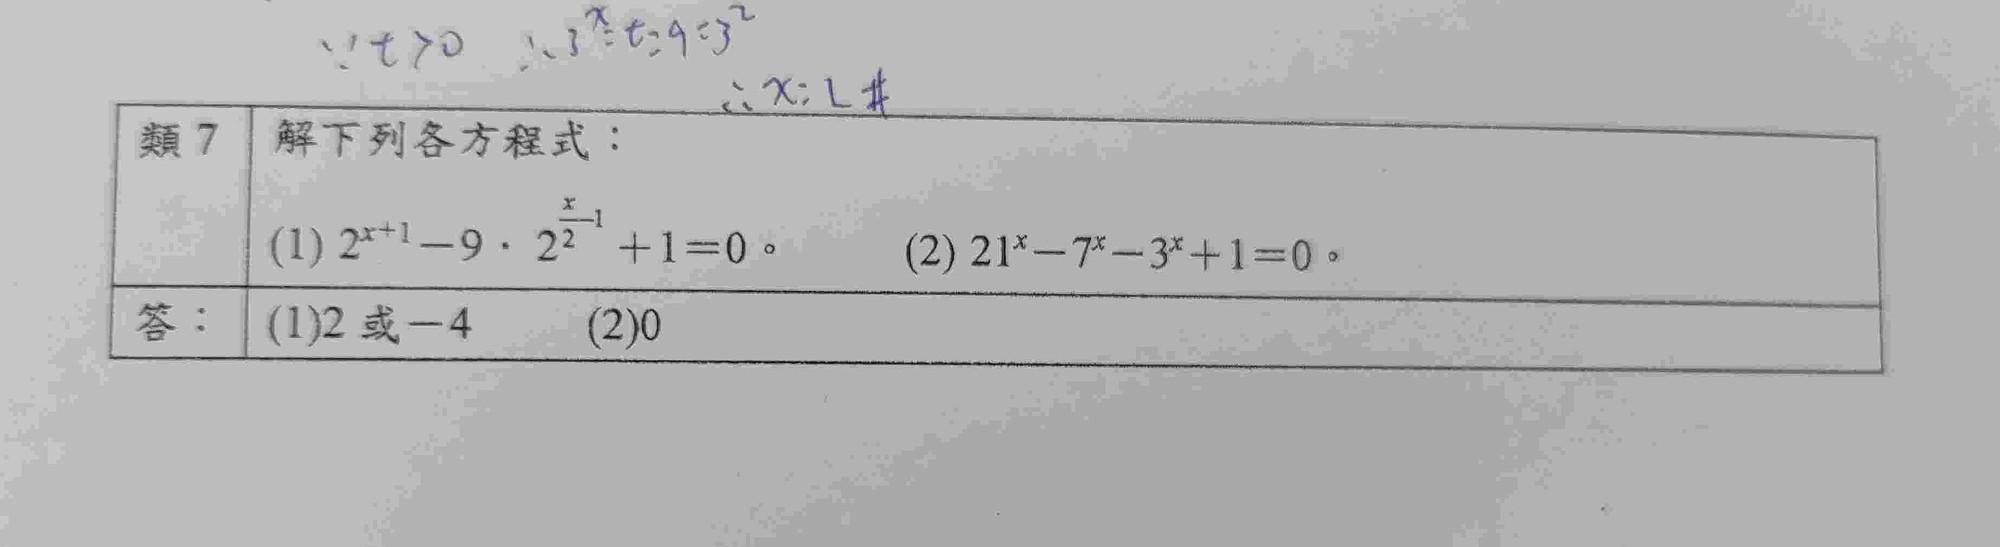 ∵ t>0 ∴ 3^x=t=9=3^2
∴ x=2 #
類7 解下列各方程式：
(1) 2^{x+1}－9．2^{\frac{x}{2}-1}＋1＝0。 (2) 21^x－7^x－3^x＋1＝0。
答： (1)2 或－4 (2)0